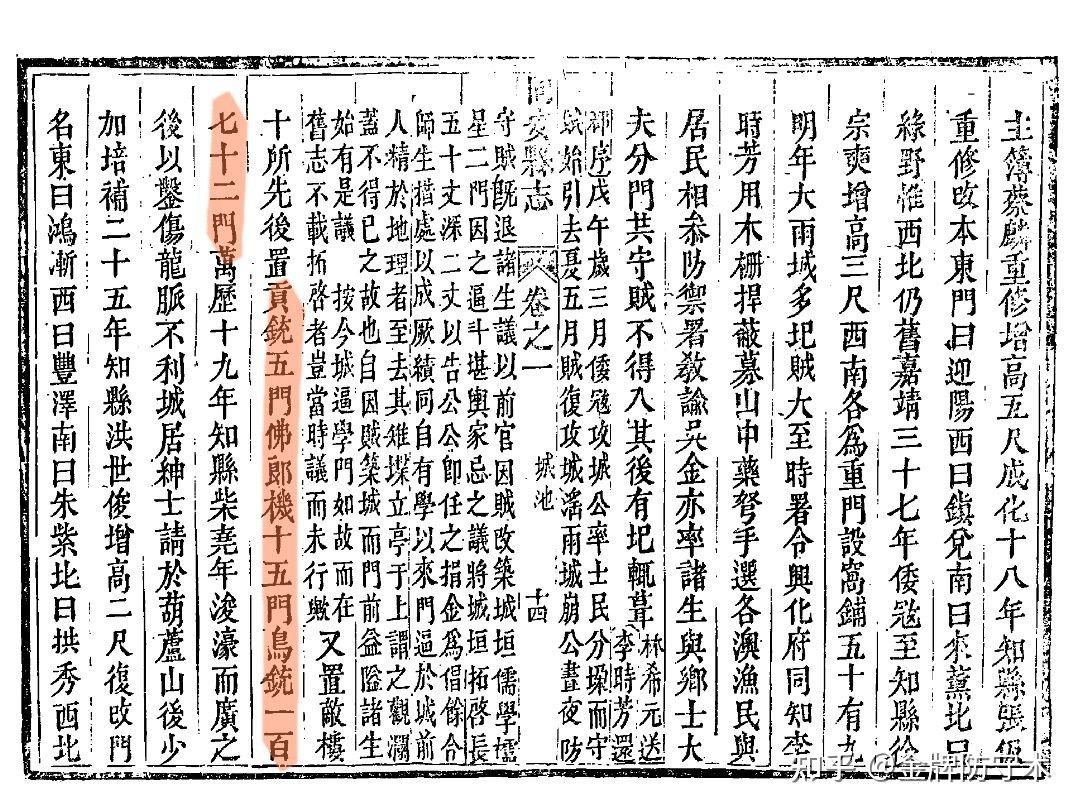 主簿蔡麟重修增高五尺成化十八年知縣張遜
重修改本東門曰迎陽西曰鎮兌南曰來薰北曰
綠野惟西北仍舊嘉靖三十七年倭寇至知縣徐
宗奭增高三尺西南各為重門設窩鋪五十有九
明年大雨城多圮賊大至時署令興化府同知李
時芳用木柵捍蔽募山中藥弩手選各澳漁民與
居民相叅防禦署教諭吳金亦率諸生與鄉士大
夫分門共守賊不得入其後有圮輒葺林希元送李時芳還
郡序戊午歲三月倭寇攻城公率士民分操而守
賊始引去夏五月賊復攻城滛雨城崩公晝夜防
安縣志 卷之一 城池 十四
守賊旣退諸生議以前官因賊改築城垣儒學櫺
星二門因之逼斗堪輿家忌之議將城垣拓啓長
五十丈深二丈以告公公卽任之捐金為倡餘合
師生措處以成厥績同自有學以來門逼於城前
人精於地理者至去其雉堞立亭于上謂之觀瀾
蓋不得已之故也自因賊築城而門前益隘諸生
始有是議 按今城逼學門如故而在
舊志不載拓啓者豈當時議而未行歟 又置敵樓
十所先後置貢銃五門佛郎機十五門鳥銃一百
七十二門萬歷十九年知縣柴堯年浚濠而廣之
後以鑿傷龍脈不利城居紳士請於葫蘆山後少
加培補二十五年知縣洪世俊增高二尺復改門
名東曰鴻漸西曰豐澤南曰朱紫北曰拱秀西北
知乎 @金牌防守木